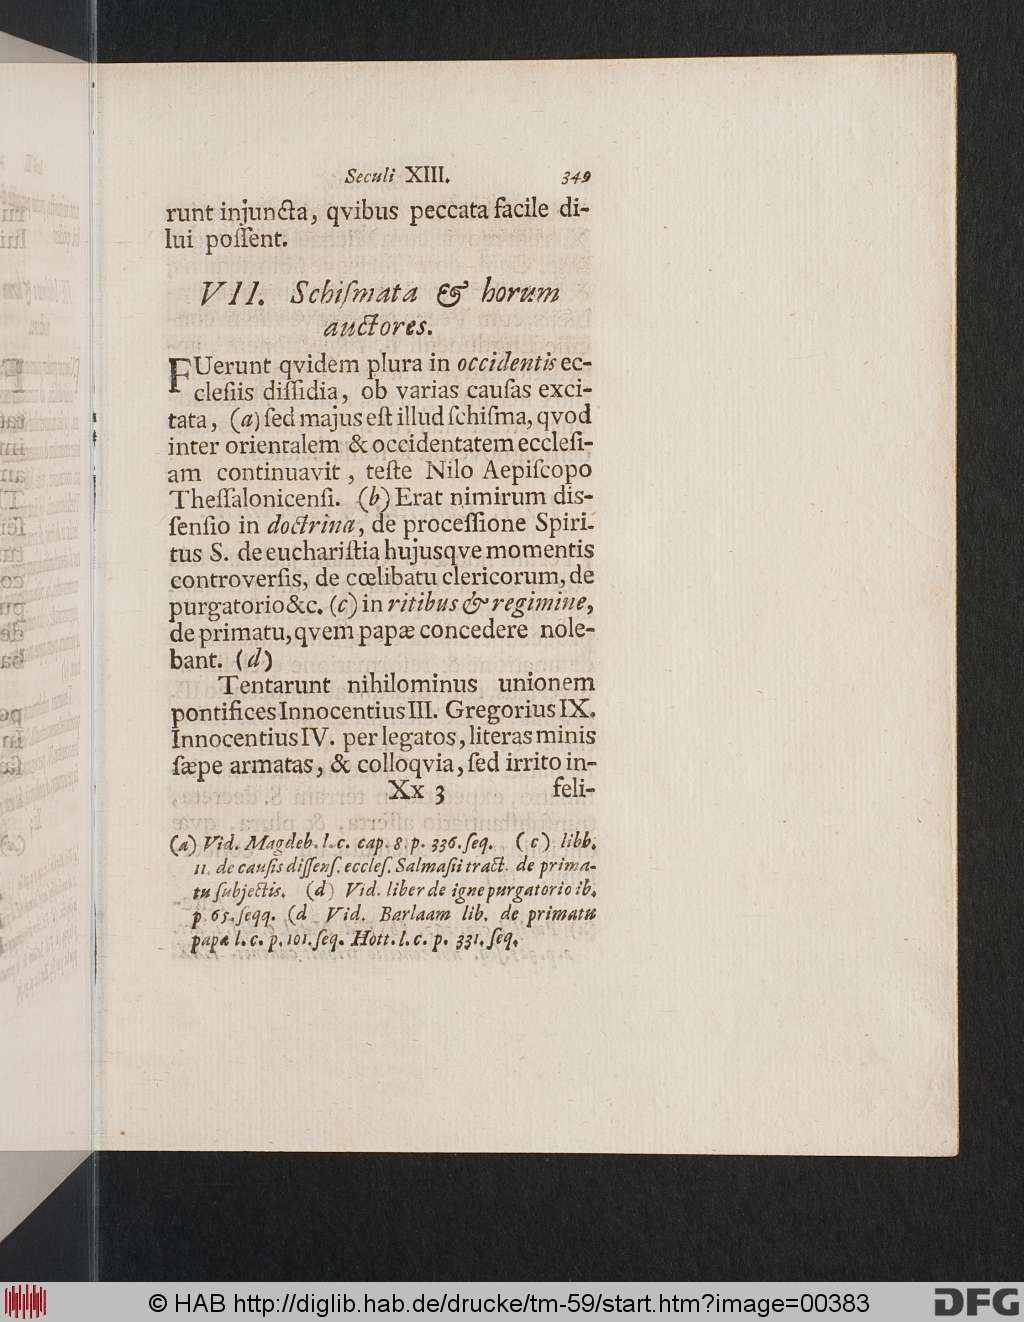 Seculi XIII. 349
runt injuncta, qvibus peccata facile di-
lui poſſent.
VII. Schiſmata & horum
auctores.
FUerunt qvidem plura in occidentis ec-
cleſiis diſſidia, ob varias cauſas exci-
tata, (a) ſed majus eſt illud ſchiſma, qvod
inter orientalem & occidentatem eccleſi-
am continuavit, teſte Nilo Aepiſcopo
Theſſalonicenſi. (b) Erat nimirum dis-
ſenſio in doctrina, de proceſſione Spiri-
tus S. de euchariſtia hujusqve momentis
controverſis, de cœlibatu clericorum, de
purgatorio &c. (c) in ritibus & regimine,
de primatu, qvem papæ concedere nole-
bant. (d)
Tentarunt nihilominus unionem
pontifices Innocentius III. Gregorius IX.
Innocentius IV. per legatos, literas minis
ſæpe armatas, & colloqvia, ſed irrito in-
Xx 3 feli-
(a) Vid. Magdeb. l. c. cap. 8. p. 336. ſeq. (c) libb.
11. de cauſis diſſenſ. eccleſ. Salmaſii tract. de prima-
tu ſubjectis. (d) Vid. liber de igne purgatorio ib.
p. 65. ſeqq. (d Vid. Barlaam lib. de primatu
papa l. c. p. 101. ſeq. Hott. l. c. p. 331. ſeq.
© HAB http://diglib.hab.de/drucke/tm-59/start.htm?image=00383
DFG